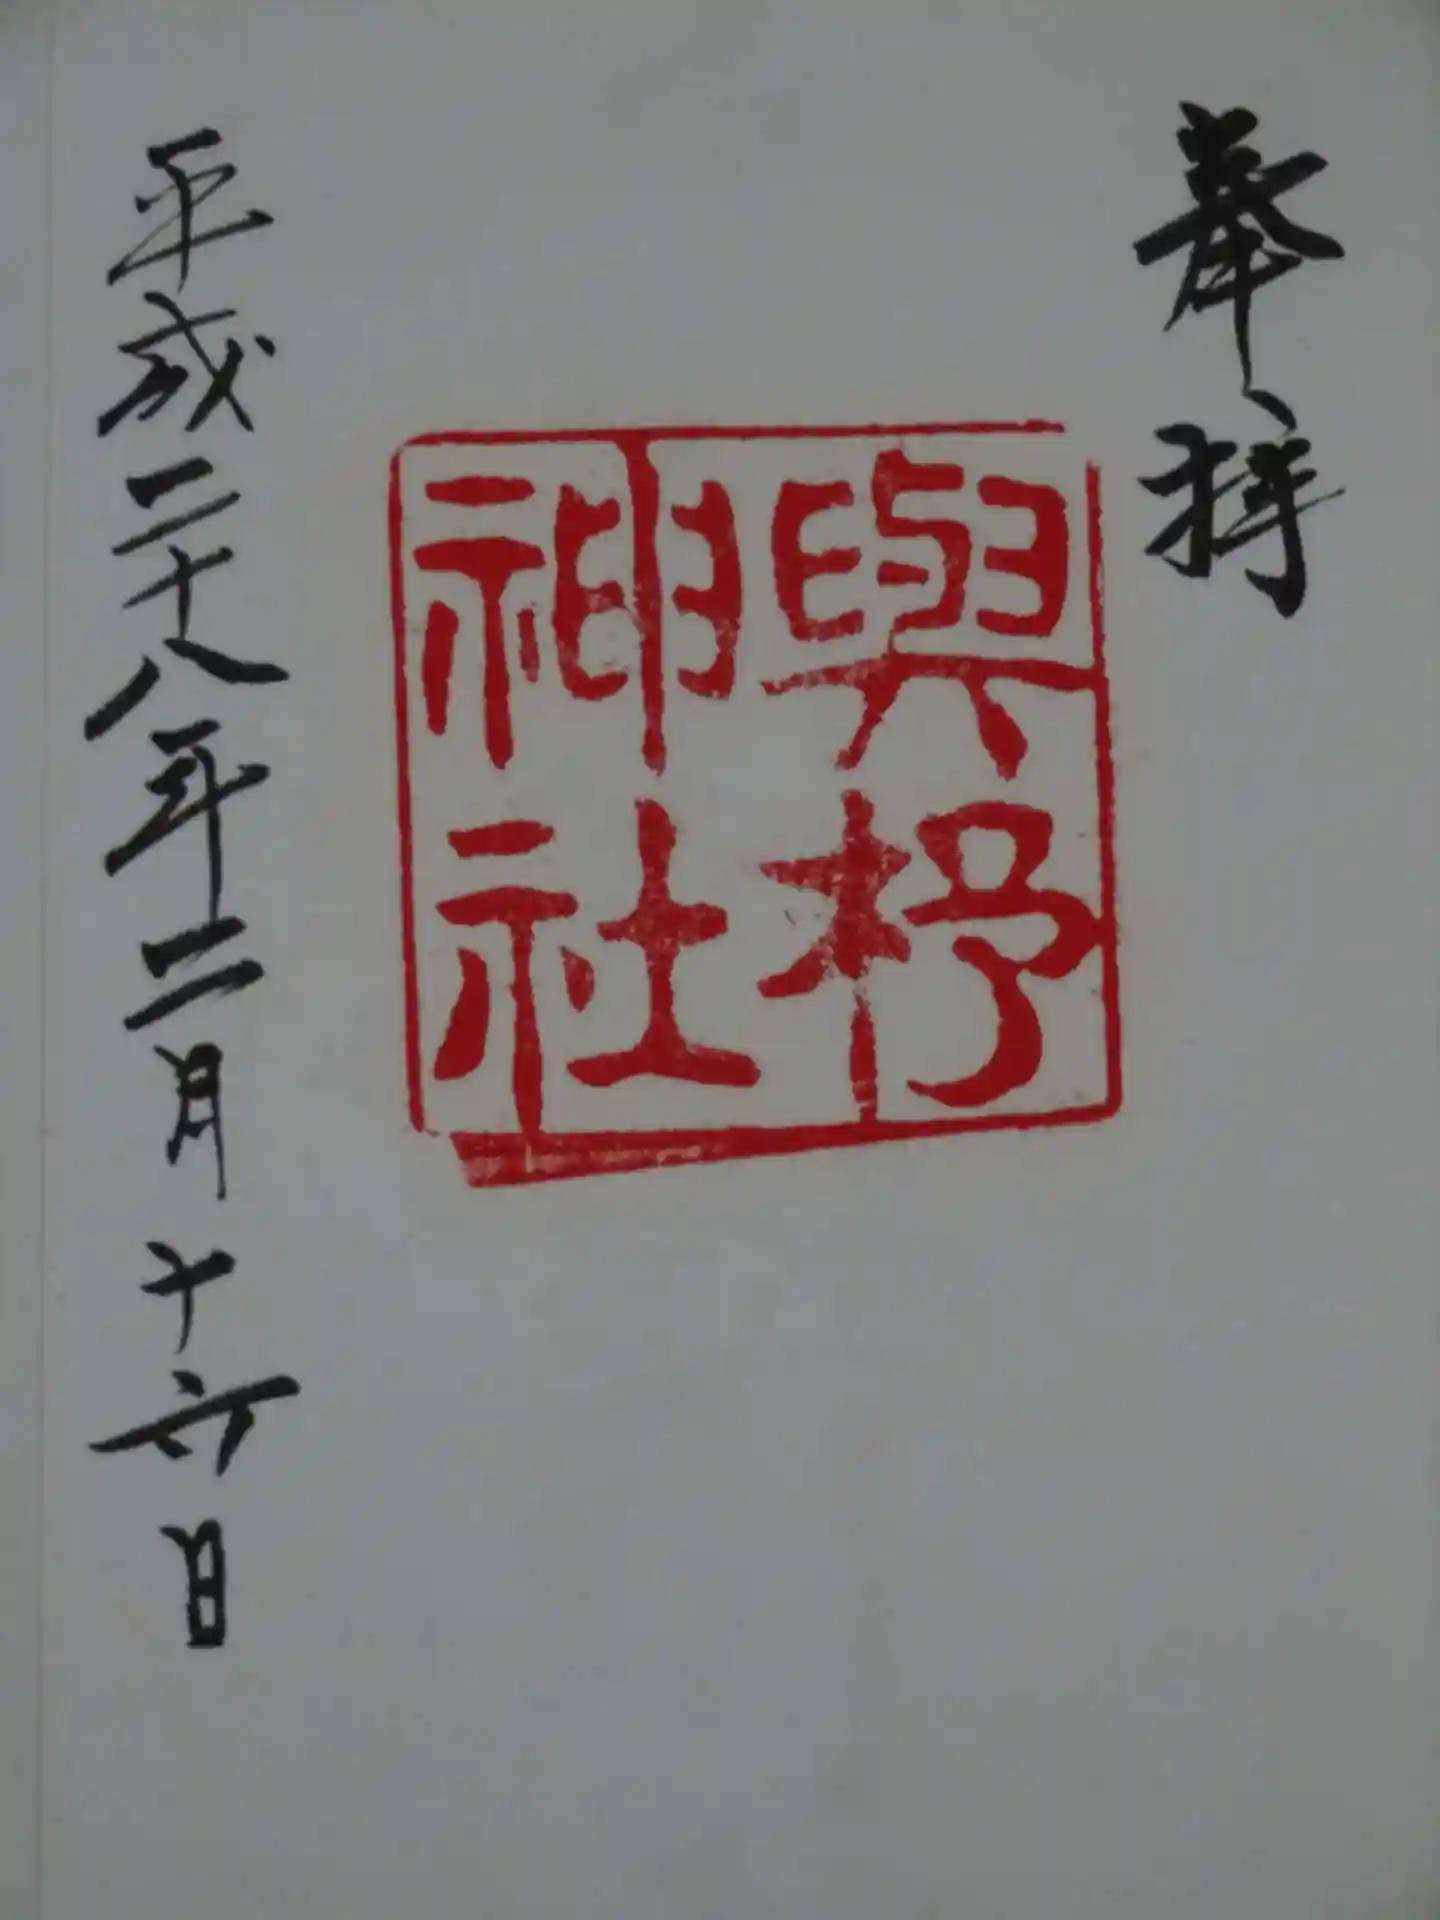 奉拝
與杼
神社
平成二十八年二月十六日